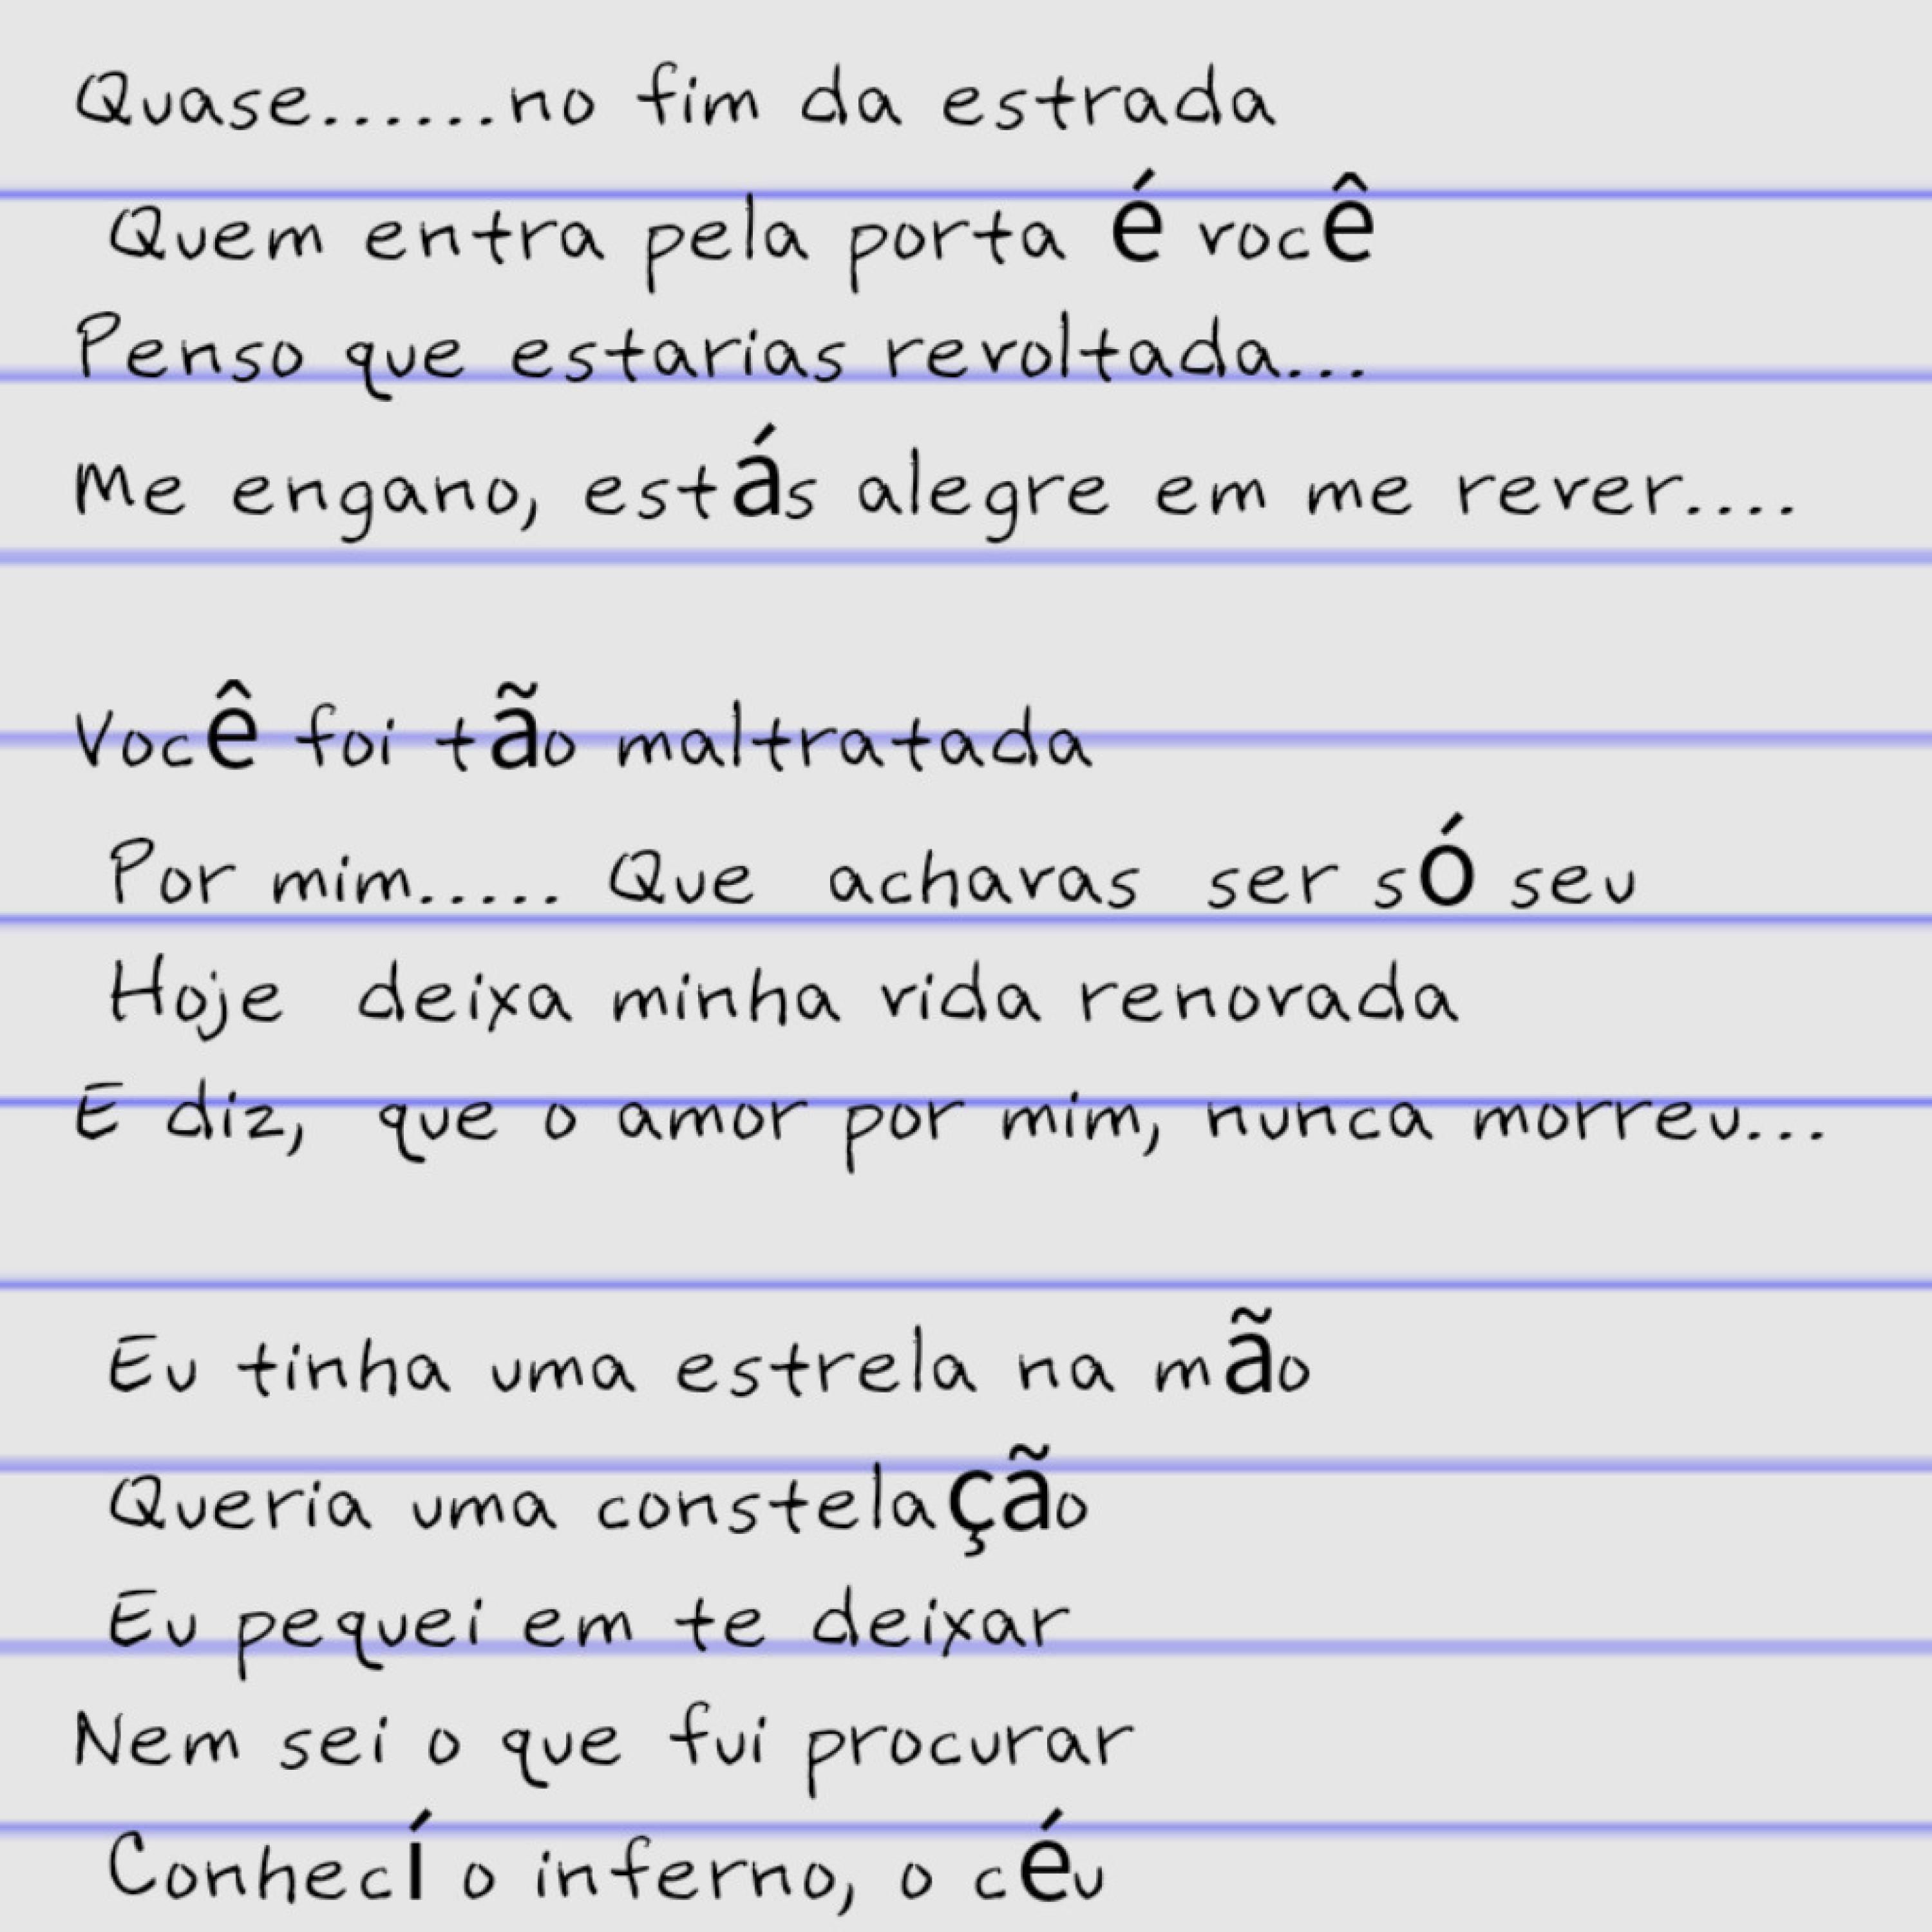 Quase......no fim da estrada
Quem entra pela porta é você
Penso que estarias revoltada...
Me engano, estás alegre em me rever....
Você foi tão maltratada
Por mim..... Que achavas ser só seu
Hoje deixa minha vida renovada
E diz, que o amor por mim, nunca morreu...
Eu tinha uma estrela na mão
Queria uma constelação
Eu pequei em te deixar
Nem sei o que fui procurar
Conhecí o inferno, o céu